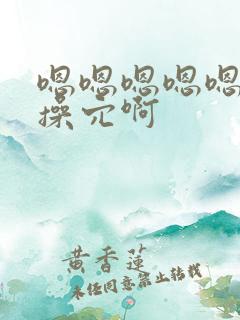 嗯嗯嗯嗯嗯
操穴啊
黄香莲
未经同意禁止转载